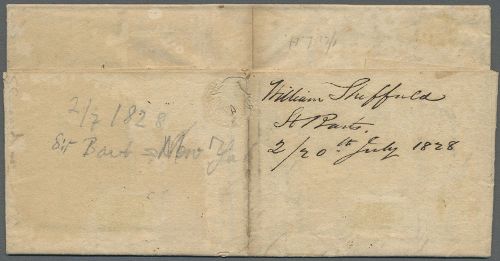 2/7 1828
St Bart - New York
William Sheffield
St Barts.
2/20th July 1828